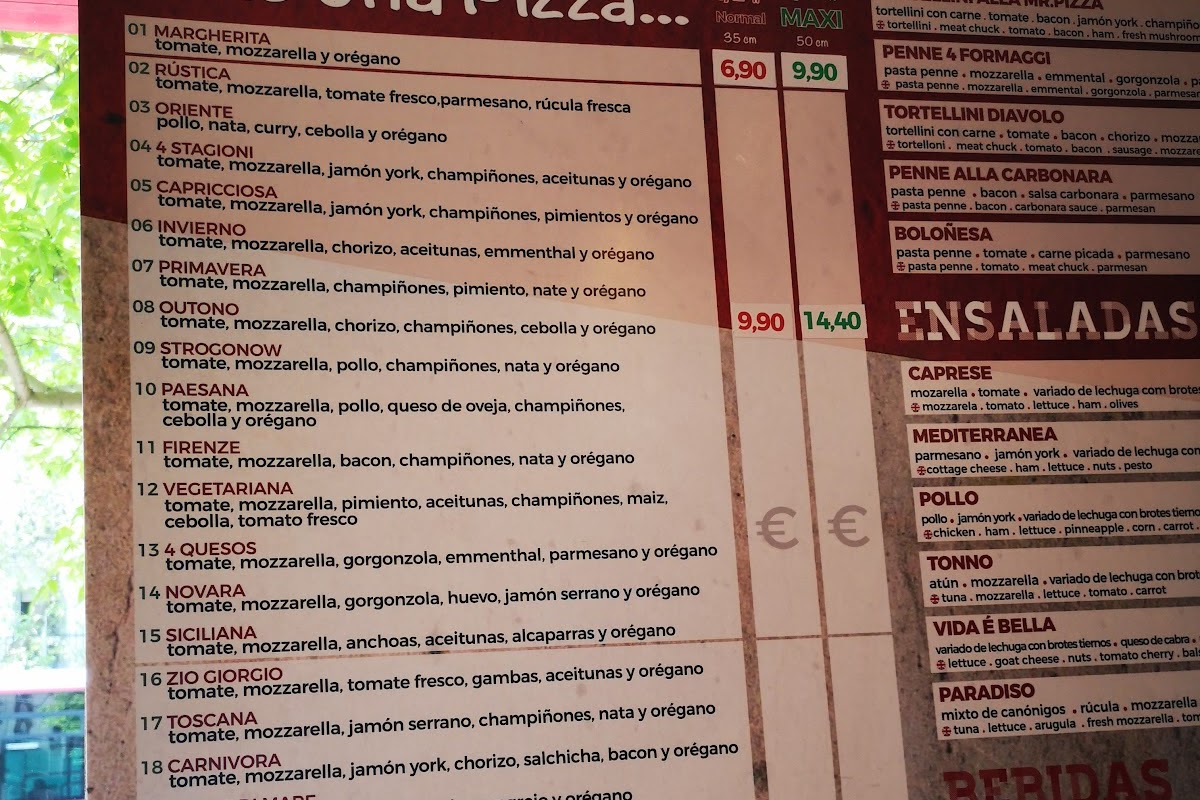 Pizza...
Normal
MAXI
35 cm
50 cm
01 MARGHERITA
tomate, mozzarella y orégano
6,90
9,90
02 RÚSTICA
tomate, mozzarella, tomate fresco,parmesano, rúcula fresca
03 ORIENTE
pollo, nata, curry, cebolla y orégano
04 4 STAGIONI
tomate, mozzarella, jamón york, champiñones, aceitunas y orégano
05 CAPRICCIOSA
tomate, mozzarella, jamón york, champiñones, pimientos y orégano
06 INVIERNO
tomate, mozzarella, chorizo, aceitunas, emmenthal y orégano
07 PRIMAVERA
tomate, mozzarella, champiñones, pimiento, nate y orégano
08 OUTONO
tomate, mozzarella, chorizo, champiñones, cebolla y orégano
9,90
14,40
09 STROGONOW
tomate, mozzarella, pollo, champiñones, nata y orégano
10 PAESANA
tomate, mozzarella, pollo, queso de oveja, champiñones,
cebolla y orégano
11 FIRENZE
tomate, mozzarella, bacon, champiñones, nata y orégano
12 VEGETARIANA
tomate, mozzarella, pimiento, aceitunas, champiñones, maiz,
cebolla, tomato fresco
€ €
13 4 QUESOS
tomate, mozzarella, gorgonzola, emmenthal, parmesano y orégano
14 NOVARA
tomate, mozzarella, gorgonzola, huevo, jamón serrano y orégano
15 SICILIANA
tomate, mozzarella, anchoas, aceitunas, alcaparras y orégano
16 ZIO GIORGIO
tomate, mozzarella, tomate fresco, gambas, aceitunas y orégano
17 TOSCANA
tomate, mozzarella, jamón serrano, champiñones, nata y orégano
18 CARNIVORA
tomate, mozzarella, jamón york, chorizo, salchicha, bacon y orégano
MARE
y orégano
ALLA MR.PIZZA
tortellini con carne . tomate . bacon . jamón york . champiño
tortellini . meat chuck . tomato . bacon . ham . fresh mushroom
PENNE 4 FORMAGGI
pasta penne . mozzarella . emmental . gorgonzola . pa
pasta penne . mozzarella . emmental . gorgonzola . parmesan
TORTELLINI DIAVOLO
tortellini con carne . tomate . bacon . chorizo . mozza
tortelloni . meat chuck . tomato . bacon . sausage . mozzare
PENNE ALLA CARBONARA
pasta penne . bacon . salsa carbonara . parmesano
pasta penne . bacon . carbonara sauce . parmesan
BOLOÑESA
pasta penne . tomate . carne picada . parmesano
pasta penne . tomato . meat chuck . parmesan
ENSALADAS
CAPRESE
mozarella . tomate . variado de lechuga com brotes
mozzarela . tomato . lettuce . ham . olives
MEDITERRANEA
parmesano . jamón york . variado de lechuga con
cottage cheese . ham . lettuce . nuts . pesto
POLLO
pollo . jamón york . variado de lechuga con brotes tierno
chicken . ham . lettuce . pinneapple . corn . carrot
TONNO
atún . mozzarella . variado de lechuga con brot
tuna . mozzarella . lettuce . tomato . carrot
VIDA É BELLA
variado de lechuga con brotes tiernos . queso de cabra .
lettuce . goat cheese . nuts . tomato cherry . bals
PARADISO
mixto de canónigos . rúcula . mozzarella
tuna . lettuce . arugula . fresh mozzarella . tom
BEBIDAS